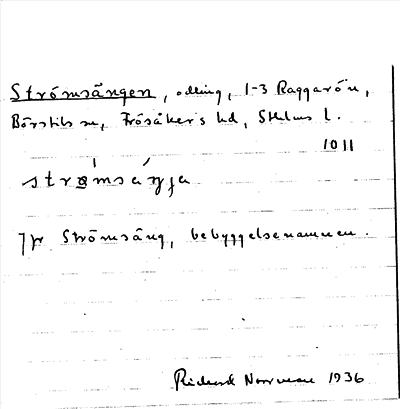 Strömsängen, odling, 1-3 Raggarön,
Börstils sn, Frösåkers hd, Sthlms l.
1011
strømsæŋja
Jfr Strömsäng, bebyggelsenamnen.
Rickard Norrman 1936